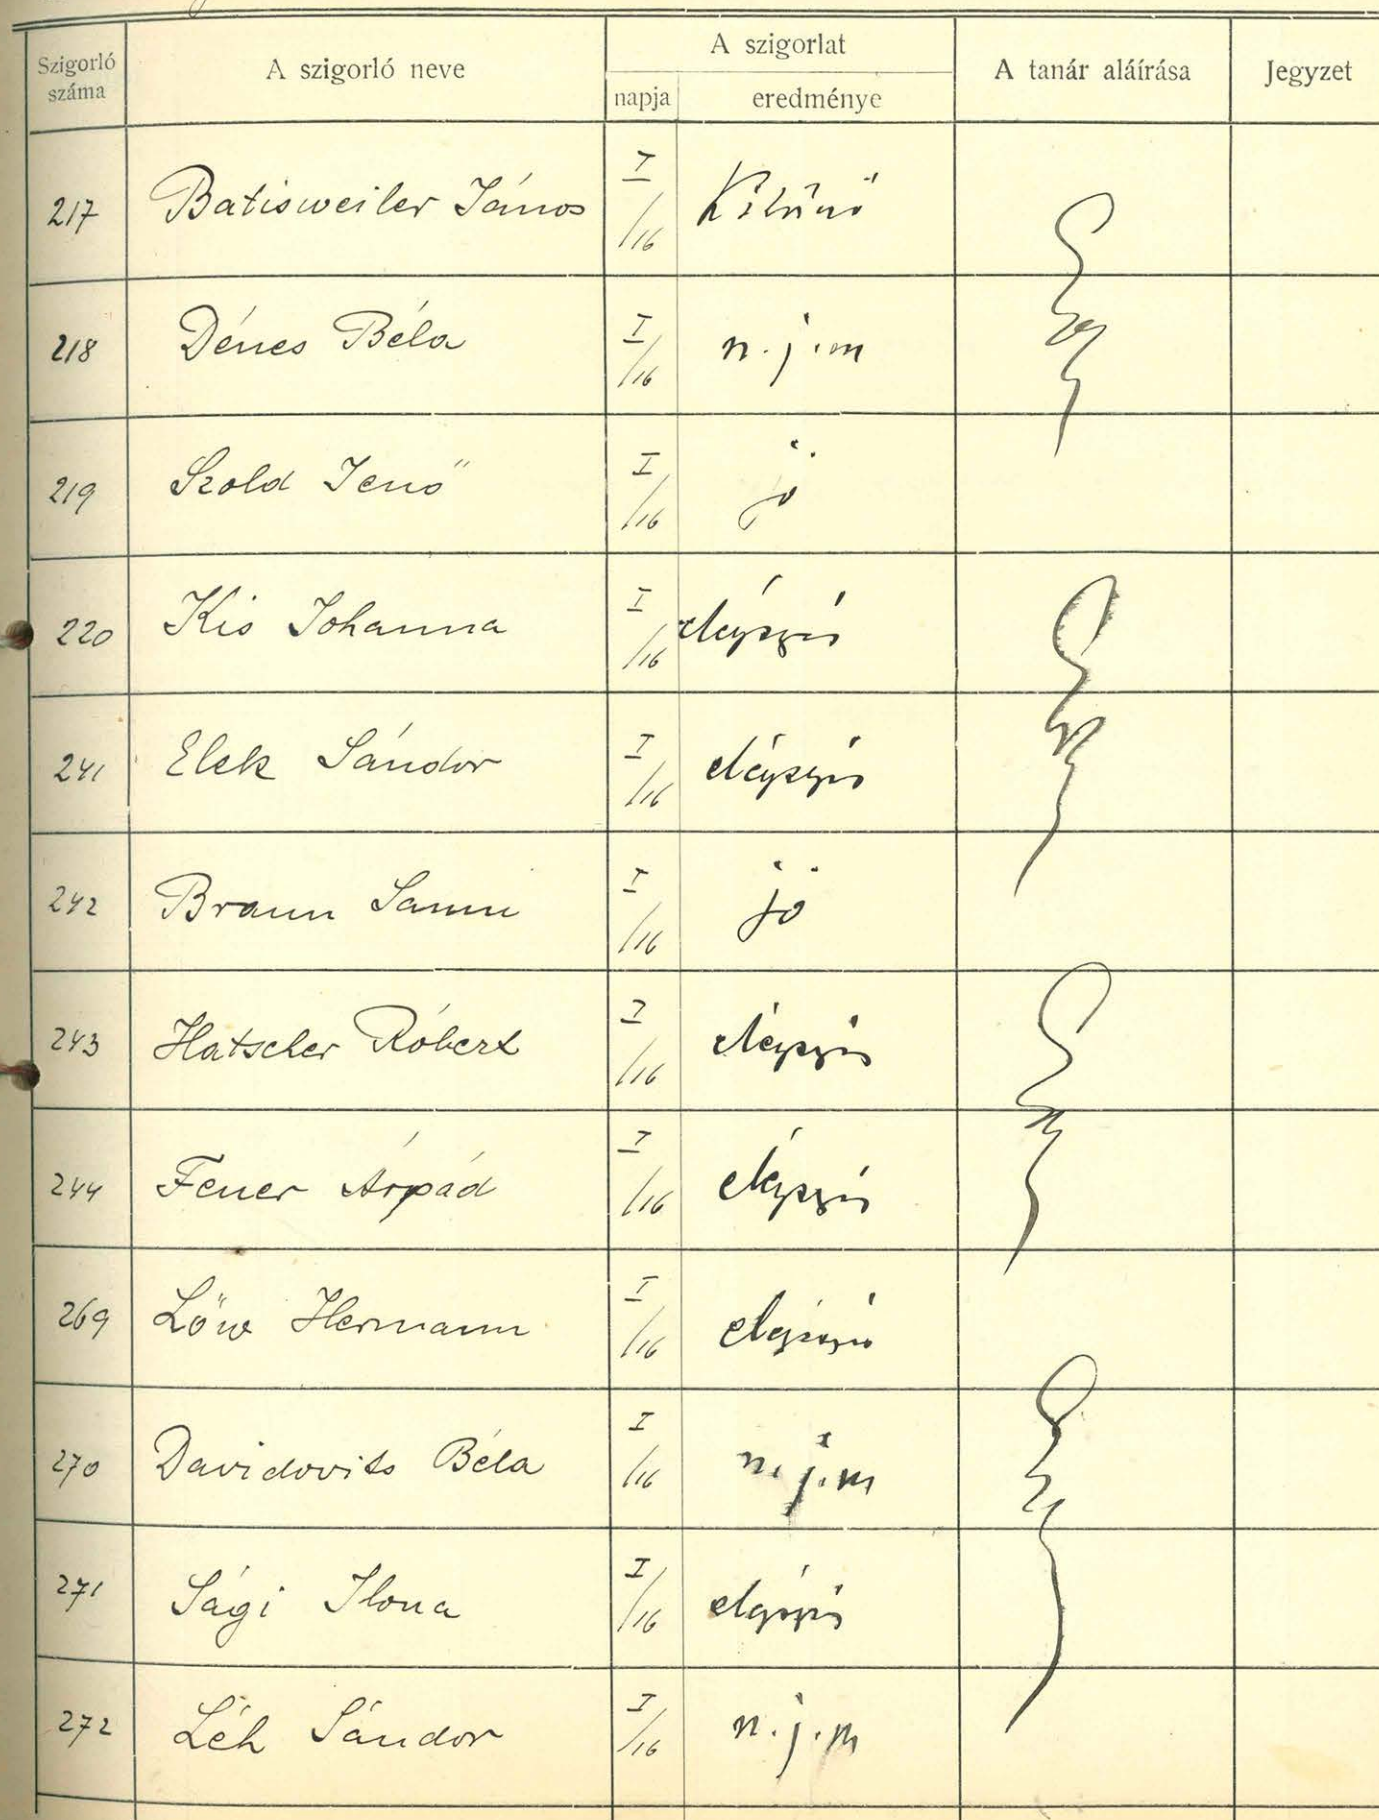 Szigorló száma | A szigorló neve | A szigorlat | A tanár aláírása | Jegyzet
napja | eredménye
217 Batisweiler János I/16 Kitűnő
218 Dénes Béla I/16 n.j.m
219 Szold Jenő I/16 jó
220 Kis Johanna I/16 elégséges
241 Elek Sándor I/16 elégséges
242 Braun I/16 jó
243 Hatscher Róbert I/16 elégséges
244 Feuer Árpád I/16 elégséges
269 Löw Hermann I/16 elégséges
270 Davidovits Béla I/16 n.j.m
271 Sági Ilona I/16 elégséges
272 Léh Sándor I/16 n.j.m